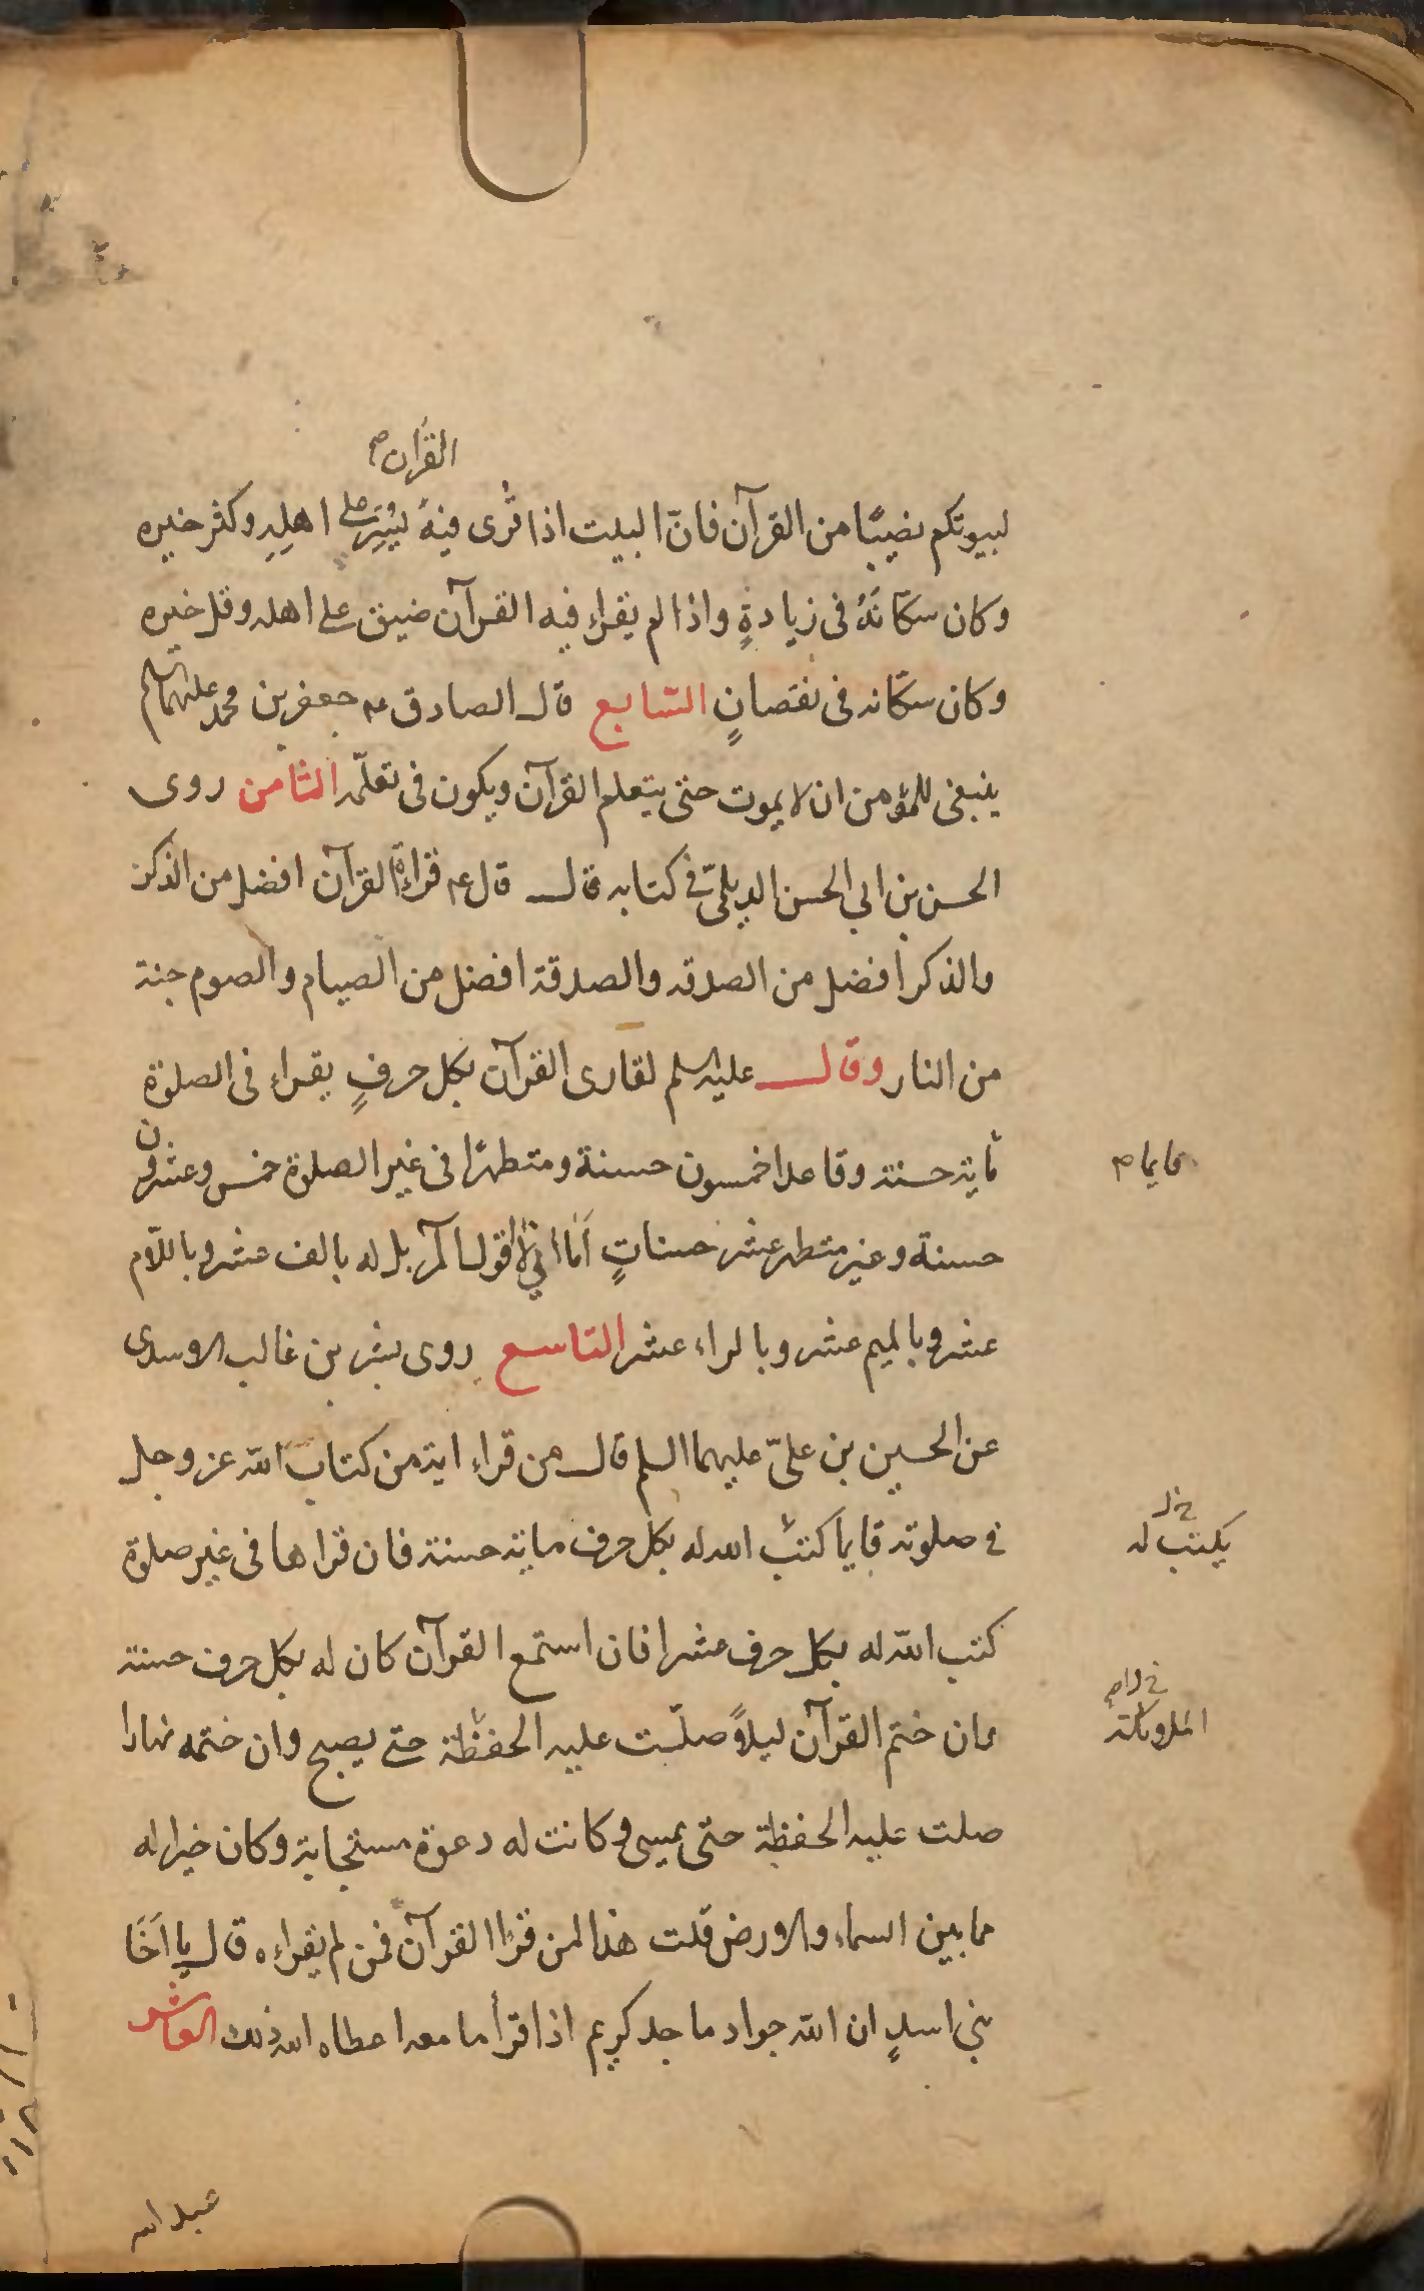 القرآن ص
لبيوتكم نصيبًا من القرآن فانّ البيت اذا قرى فيه يُيَسِّر على اهلِهِ وكثر خيره
وكان سكّانَهُ فى زيادةٍ واذا لم يقراء فيه القرآن ضيق على اهله وقل خيره
وكان سكّانه فى نقصانٍ السّابع قال الصادق عم جعفر بن محمد عليهما السلم
ينبغى للمؤمن ان لا يموت حتى يتعلم القرآن ويكون فى تعلّمه الثامن روى
الحسن بن ابي الحسن الديلمىّ فى كتابه قال قال عم قراءة القرآن افضل من الذكر
والذكر افضل من الصدقه والصدقة افضل من الصيام والصوم جنة
من النار وقال عليه السلم لقارى القرآن بكل حرفٍ يقراء فى الصلوة
قايما ص
مأية حسنة وقاعدا خمسون حسنة ومتطهرًا فى غير الصلوة خمس وعشرون
حسنة وغير متطهر عشر حسناتٍ اَمَا انى لا اقول المر بل له بالف عشر وباللّام
عشر وبالميم عشر وبالراء عشر التاسع روى بشر بن غالب الاسدى
عن الحسين بن علىّ عليهما السلم قال من قراء اية من كتاب اللّه عز وجل
يكتب له خ ل
فى صلوته قايما كتب الله له بكل حرف ماية حسنة فان قراها فى غير صلوة
كتب اللّه له بكل حرف عشرا فان استمع القرآن كان له بكل حرف حسنة
الملائكة
فان ختم القرآن ليلاً صلّت عليه الحفظة حتى يصبح وان ختمه نهارا
صلت عليه الحفظة حتى يمسى وكانت له دعوة مستجابة وكان خيرا له
مما بين السماء والارض قلت هذا لمن قرا القرآن فمن لم يقراءه قال يا اَخَا
بنى اسدٍ ان اللّه جواد ماجد كريم اذا قرأ ما معه اعطاه الله ذلك العاشر
عبد الله